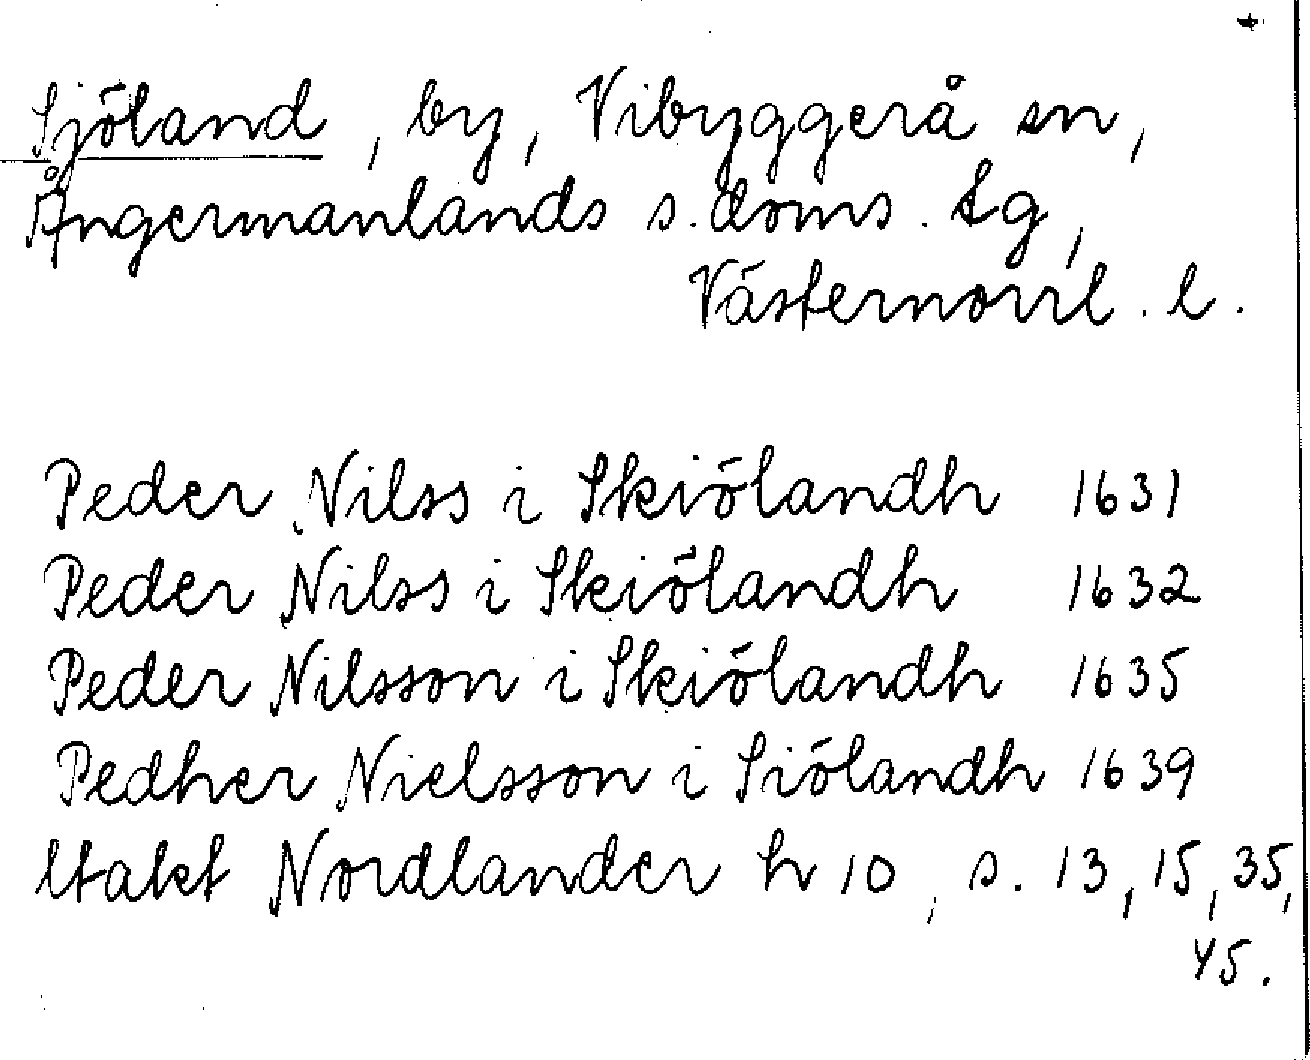 Sjöland, by, Vibyggerå sn,
Ångermanlands s. doms. tg,
Västernorrl. l.
Peder Nilss i Skiölandh 1631
Peder Nilss i Skiölandh 1632
Peder Nilsson i Skiölandh 1635
Pedher Nielsson i Siölandh 1639
Utakt Nordlander h 10, s. 13, 15, 35,
45.